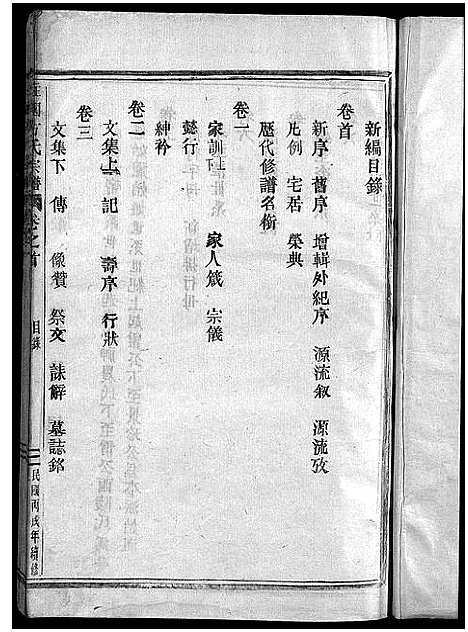 新編目錄
卷首
新序 舊序 增輯外紀序 源流叙 源流攷
凡例 宅居 榮典
歷代修譜名銜
卷一
家訓上下 家人箴 宗儀
懿行
紳衿
卷二
文集上 記 壽序 行狀
卷三
文集下 傳 像贊 祭文 誄辭 墓誌銘
方氏宗譜 卷之首 目錄 民國丙戌年續修